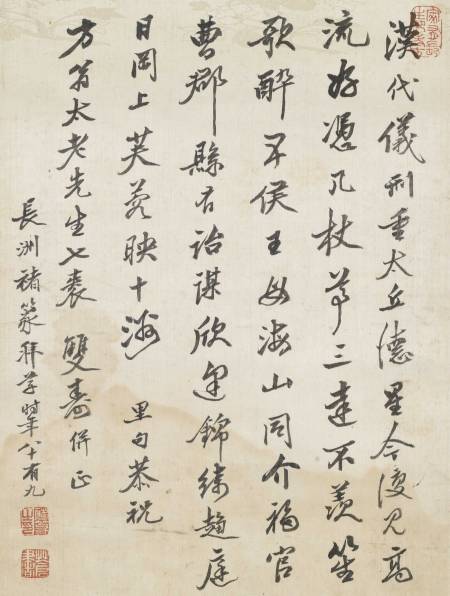 漢代儀刑重太丘德星今復見高
流好憑几杖尊三達不羨笙
歌醉五侯王母海山同介福官
曹郡縣有詒謀欣逢錦綵趨庭
日岡上芙蓉映十洲 里句恭祝
方翁太老先生七袠 雙壽 併正
長洲褚篆拜草時年八十有九